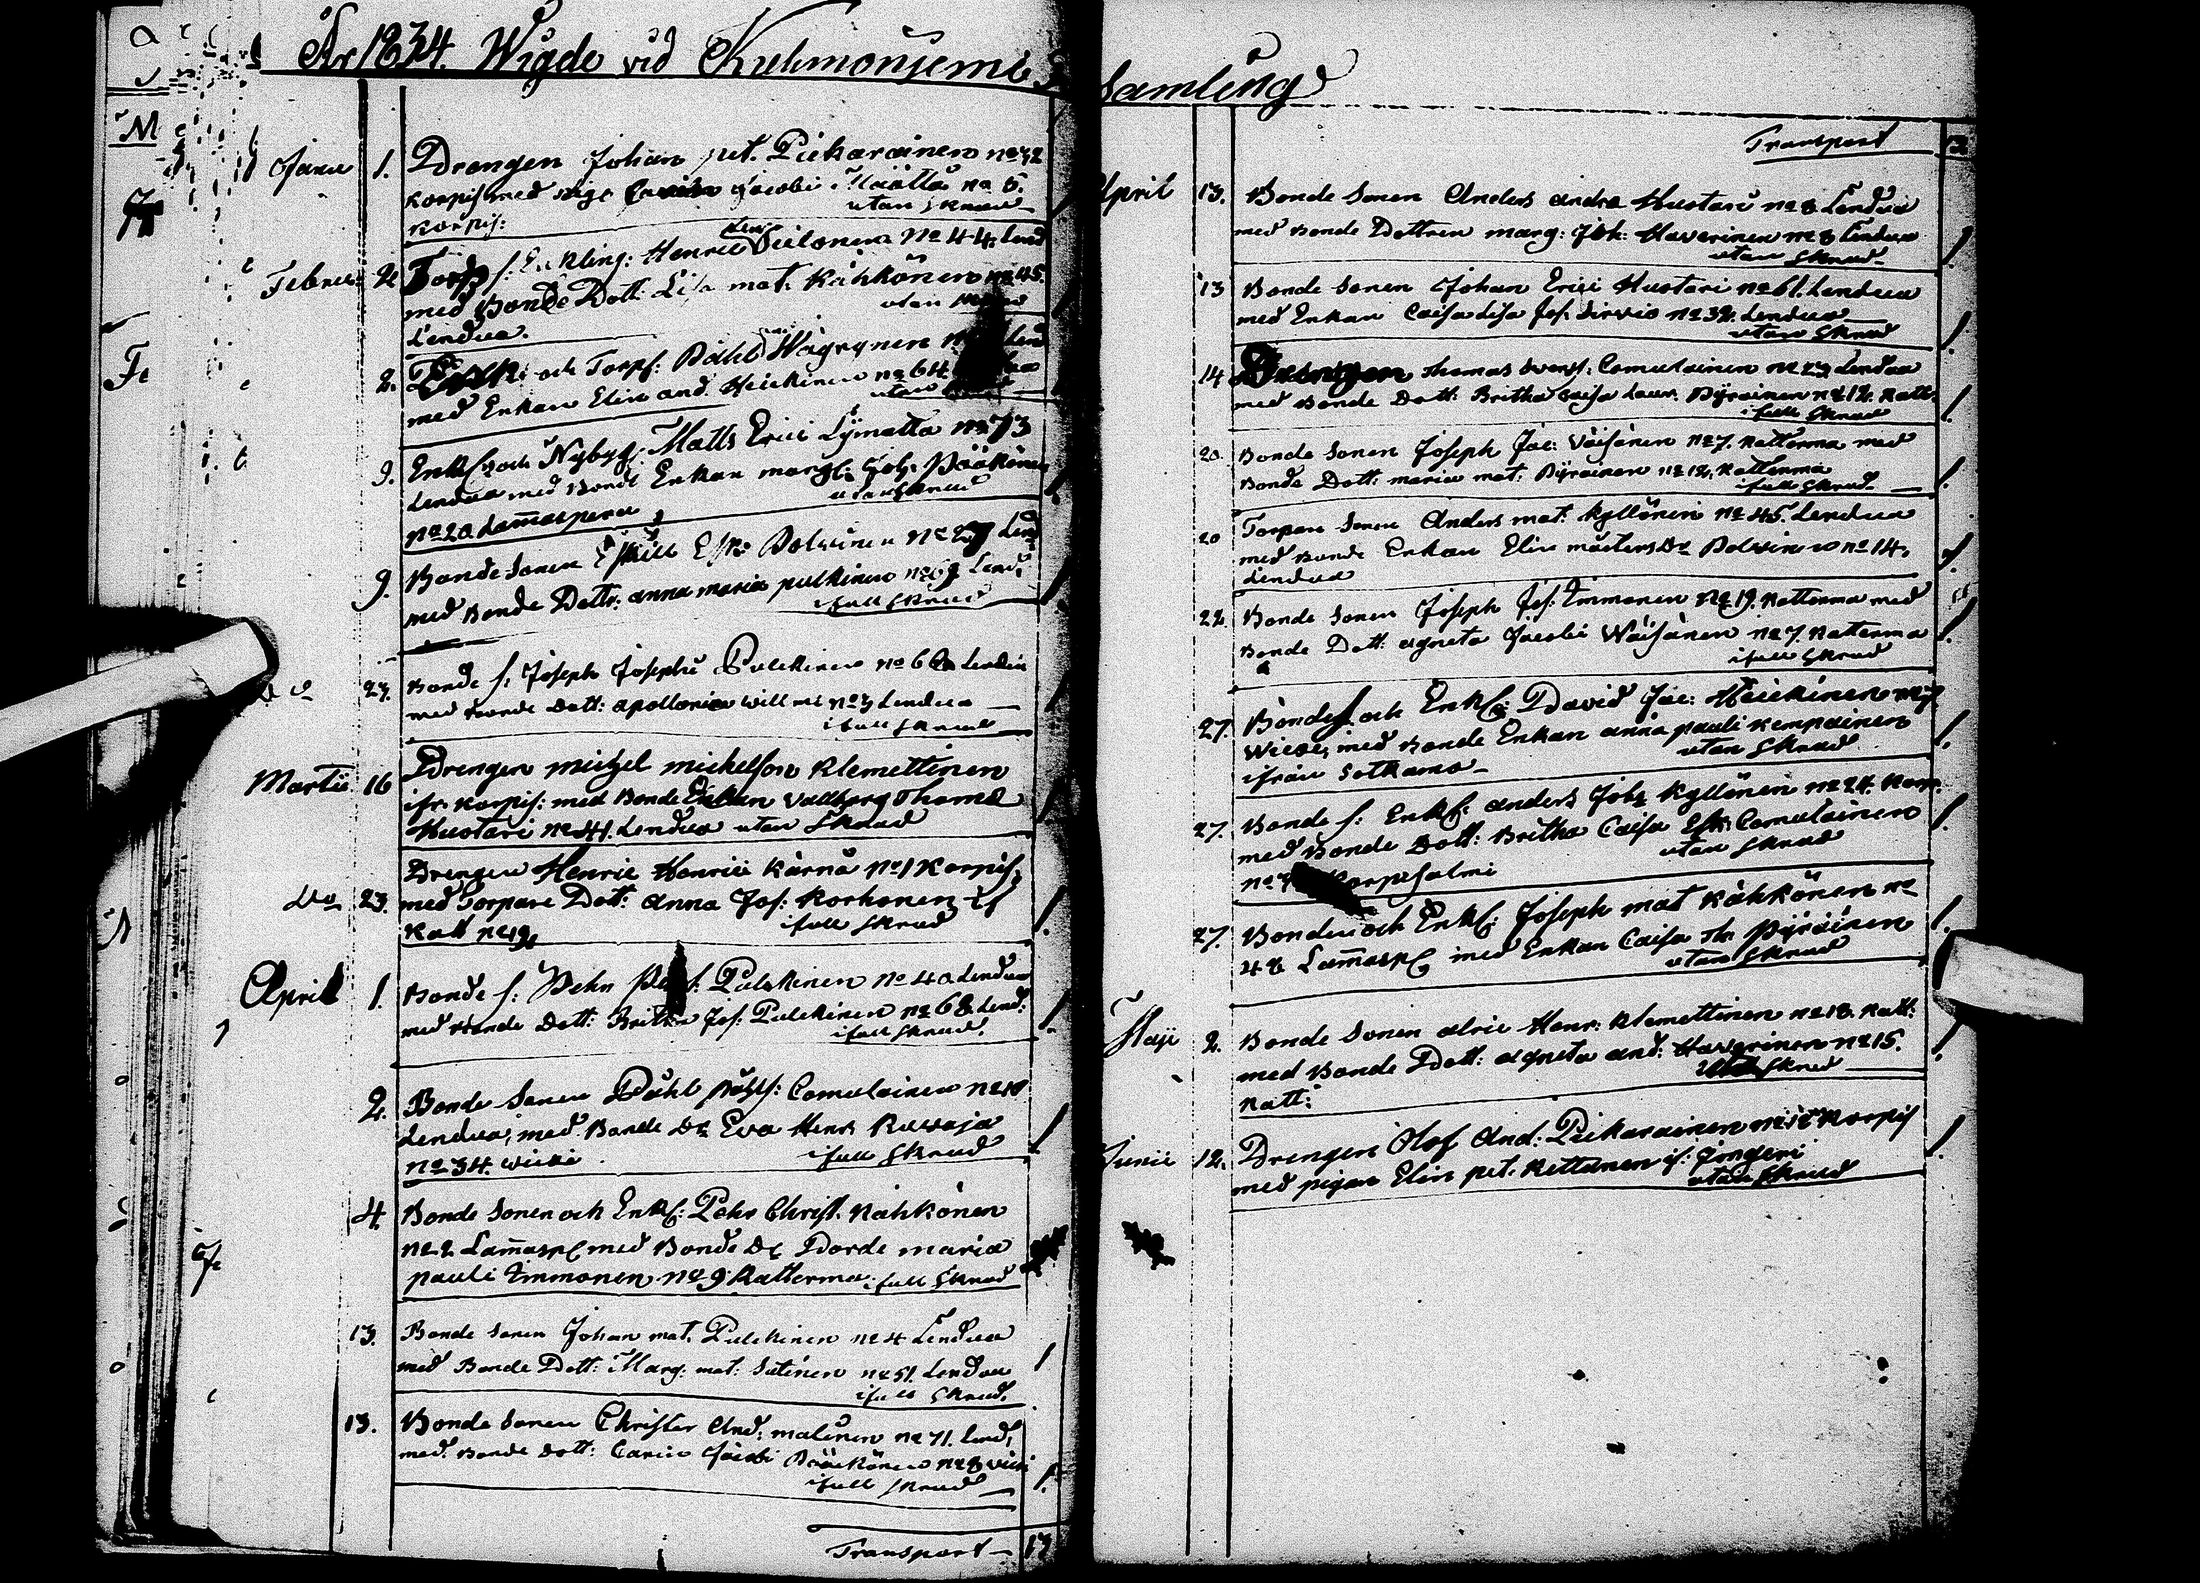 År 1834. Wigde vid Kuhmoniemi
Samling
Janu 1. Drengen Johan pet. Pickarainen no 32
Korpis med Jacobi Määttä no 5.
Korpis: utan skrud
Februa: 2 Torp s: Enkling: Henric Piilonen No 44 Lend
med Bonde Dott: Lisa mat. Kähkönen no 45.
Lendua. utan skrud
2. och Torps: Påhl Wäyrynen Lend
med Enkan Elin and. Heickinen no 64
utan
9. Enkl: och Nybyg. Matts Erici Lÿmatta no 73
Lendua med Bonde Enkan marg: Joh: Pääkönen
no 20 Lamaspera utan skrud
9. Bonde Sonen Eskill Esk: Polvinen no 29 Lend
med Bonde Dottr: anna maria pulkinen no 69 Lend:
i full skrud
do 23. Bonde s. Joseph Josephi Pulckinen no 68 Lendua
med Bonde Dott: apollonia no 3 Lendua
i full skrud
Martii 16 Drengen michel michelson Klemettinen
ifr. Korpis: med Bonde Enkan Valborg Thomæ
Huotari no 41. Lendua utan skrud
Do 23. Drengen Henric Henrici Kärnä No 1 Korpis,
med Torpare Dott: anna Jos: Korhonen
Katt no 19, i full skrud
April 1. Bonde s: Pehr Pulckinen No 40 Lendua
med Bonde Dott: Britha Jos: Pulckinen no 68 Lend:
i full skrud.
2. Bonde Sonen Påhl påhls: Comulainen no 10
Lendua, med Bonde Dr Eva Henr Ruvaja
no 34. Wieki i full skrud
4. Bonde Sonen och Enkl: Pehr Christ. Kähkönen
no 2 Lamasp med Bonde Dr Dorde maria
pauli Immonen no 9 Katterma i full skrud
13. Bonde Sonen Johan mat. Pulckinen no 4 Lendua
med Bonde Dott: Marg: mat: Sutinen no 51. Lendua
i full skrud.
13. Bonde Sonen Christer And: malinen no 71. Lend,
med Bonde Dott: Carin Jacobi Pääkönen no 8 Wieki
i full skrud
Transport 13
Transport 13
April 13. Bonde Sonen Anders andræ Huotari no 8 Lendua
med Bonde Dottren marg: Joh: Haverinen no 8 Lendua
utan skrud
13 Bonde Sonen Johan Erici Huotari no 61. Lendua
med Enkan Caisa Lisa Jos: Sirviö no 39. Lendua
utan skrud
14 Drengen Thomas Comulainen no 23 Lendua
med Bonde Dott: Britha Caisa Laur. Pÿrainen no 12. Katt.
i full skrud
20. Bonde Sonen Joseph Jac: Väisänen no 7. Katterma med
Bonde Dott: maria mat: Pÿrainen no 12, Katterma
i full skrud
20 Torpare Sonen Anders mat. Kyllönen no 45. Lendua
med Bonde Enkan Elin mårtens Dr Polvinen no 14.
Lendua
22. Bonde Sonen Joseph Jos: Immonen no 19. Katterma med
Bonde Dott: agneta Jacobi Wäisänen no 7. Katterma
i full skrud
27. Bonde och Enkl: David Jac: Heickinen no 7
Wieki, med Bonde Enkan anna pauli Kempainen
ifrån Sotkamo utan skrud
27. Bonde s: Enkl: anders Joh. Kyllönen no 24. Kor.
med Bonde Dott: Britha Caisa Esk: Comulainen
no Korpisalmi utan skrud
27. Bonden och Enkl: Joseph mat Kähkönen no
48 Lamasp med Enkan Caisa Th: Pÿräinen
utan skrud
Maji 2. Bonde Sonen alric Henr: Klemettinen no 18. Katt:
med Bonde Dott: agneta and: Haverinen no 15.
Katt: skrud
Junii 12. Drengen Olof And: Pickarainen no 12 Korpis
med pigan Elin pet. Kettunen
utan skrud